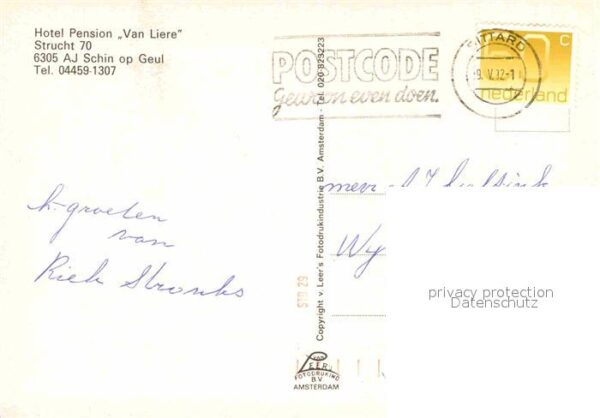 Hotel Pension „Van Liere”
Strucht 70
6305 AJ Schin op Geul
Tel. 04459-1307
POSTCODE
Gewoon even doen.
SITTARD
9. V.
c
nederland
h. groeten
van
Riek Stronks
Copyright v. Leer's Fotodrukindustrie B.V. Amsterdam - Tel. 020-823223
STD 29
VAN
LEER
FOTODRUKIND
B.V.
AMSTERDAM
Wy
privacy protection
Datenschutz